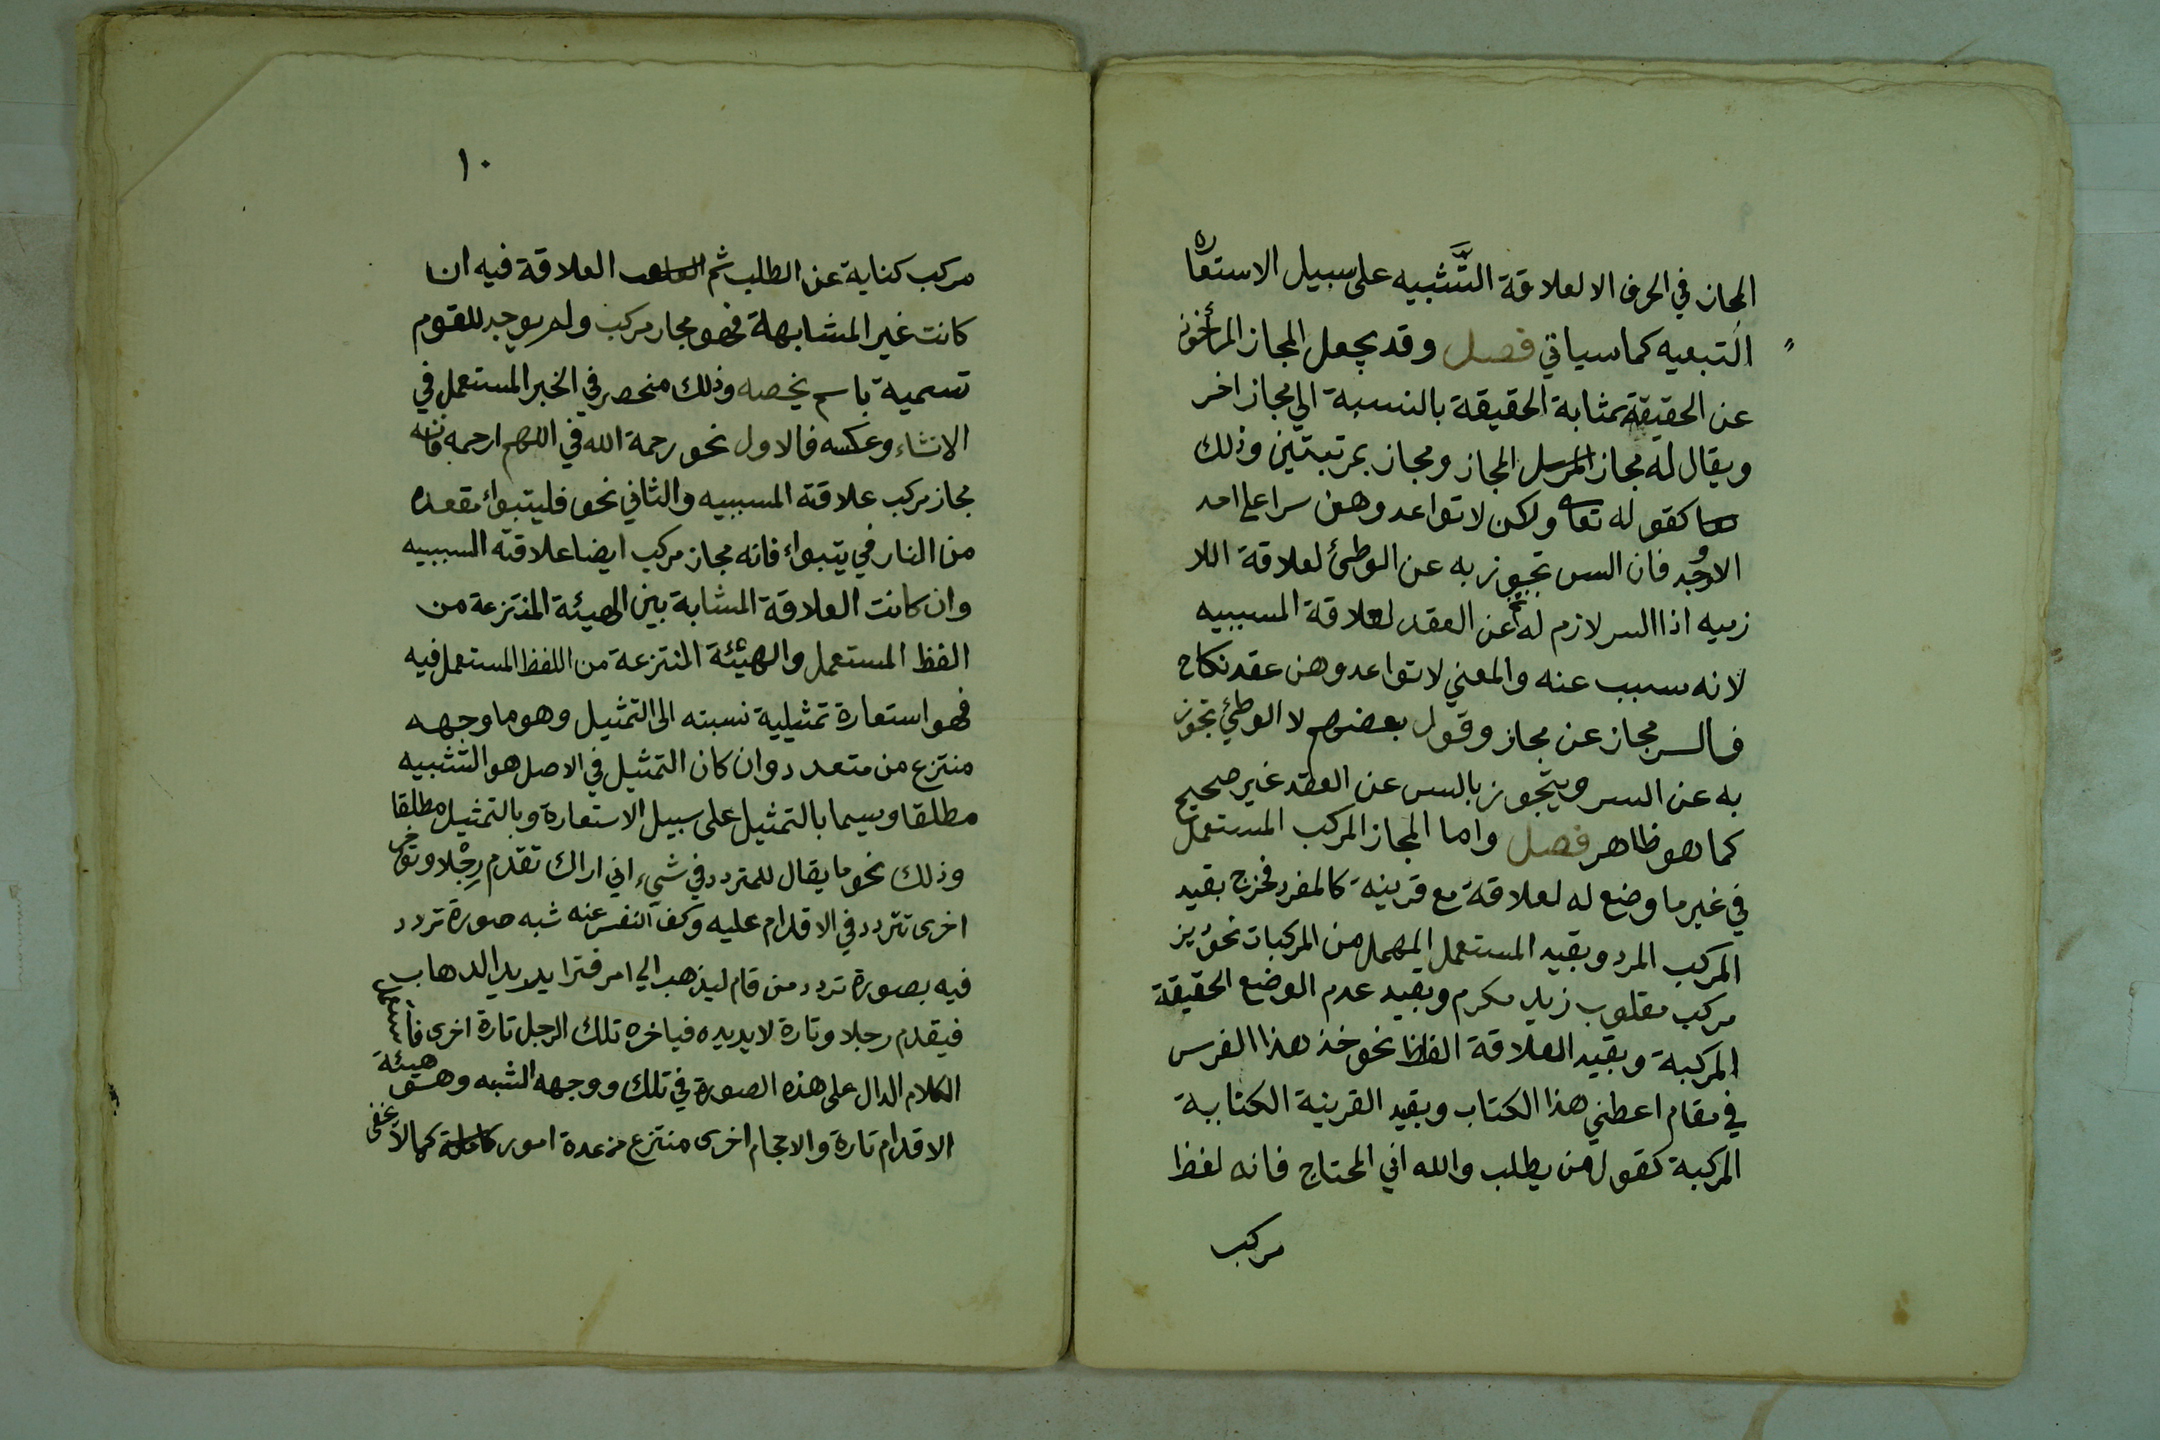 المجاز في الحرف الا لعلاقة التشبيه على سبيل الاستعاره
التبعيه كما سياتي فصل وقد يجعل المجاز المأخوذ
عن الحقيقة بمثابة الحقيقة بالنسبة الي مجاز اخر
ويقال له مجاز المجاز ومجاز بمرتبتين وذلك
كقوله تعالى ولكن لا تواعدوهن سرا على احد
الاوجه فان السر تجوز به عن الوطئ لعلاقة اللا
زميه اذ السر لازم له عن العقد لعلاقة المسببيه
لانه سبب عنه والمعني لا تواعدوهن عقد نكاح
فالسر مجاز عن مجاز وقول بعضهم لا الوطئ تجوز
به عن السر ويتجوز بالسر عن العقد غير صحيح
كما هو ظاهر فصل واما المجاز المركب المستعمل
في غير ما وضع له لعلاقة مع قرينة كالمفرد فخرج بقيد
المركب المرد وبقيد المستعمل المهمل من المركبات نحو يز
مركب مقلوب زيد مكرم وبقيد عدم الوضع الحقيقة
المركبة وبقيد العلاقة الغلط نحو خذ هذا الفرس
في مقام اعطني هذا الكتاب وبقيد القرينة الكتابية
المركبة كقول من يطلب والله اني المحتاج فانه لفظ
مركب
١٠
مركب كناية عن الطلب ثم العلاقة فيه ان
كانت غير المشابهة فهو مجاز مركب ولم يوجد للقوم
تسمية باسم يخصه وذلك منحصر في الخبر المستعمل في
الانشاء وعكسه فالاول نحو رحمة الله في اللهم ارحمه فانه
مجاز مركب علاقته المسببيه والثاني نحو فليتبوأ مقعده
من النار في يتبواء فانه مجاز مركب ايضا علاقته السببيه
وان كانت العلاقة المشابة بين الهيئة المنتزعة من
الفظ المستعمل والهيئة المنتزعة من اللفظ المستعمل فيه
فهو استعارة تمثيلية نسبته الى التمثيل وهو ما وجهه
منتزع من متعدد وان كان التمثيل في الاصل هو التشبيه
مطلقا ويسما بالتمثيل على سبيل الاستعارة وبالتمثيل مطلقا
وذلك نحو ما يقال للمتردد في شيء اني اراك تقدم رجلا وتوخر
اخرى تتردد في الاقدام عليه وكف النفس عنه شبه صورة تردد
فيه بصورة تردد من قام ليذهب الي امر فترا يديد الدهاب
فيقدم رجلا وتارة لا يديده فياخره تلك الرجل تارة اخرى فأستعمل
الكلام الدال على هذه الصورة في تلك ووجهه الشبه وهو هيئة
الاقدام تارة والاحجام اخرى منتزع من عدة امور كما لا يخفى